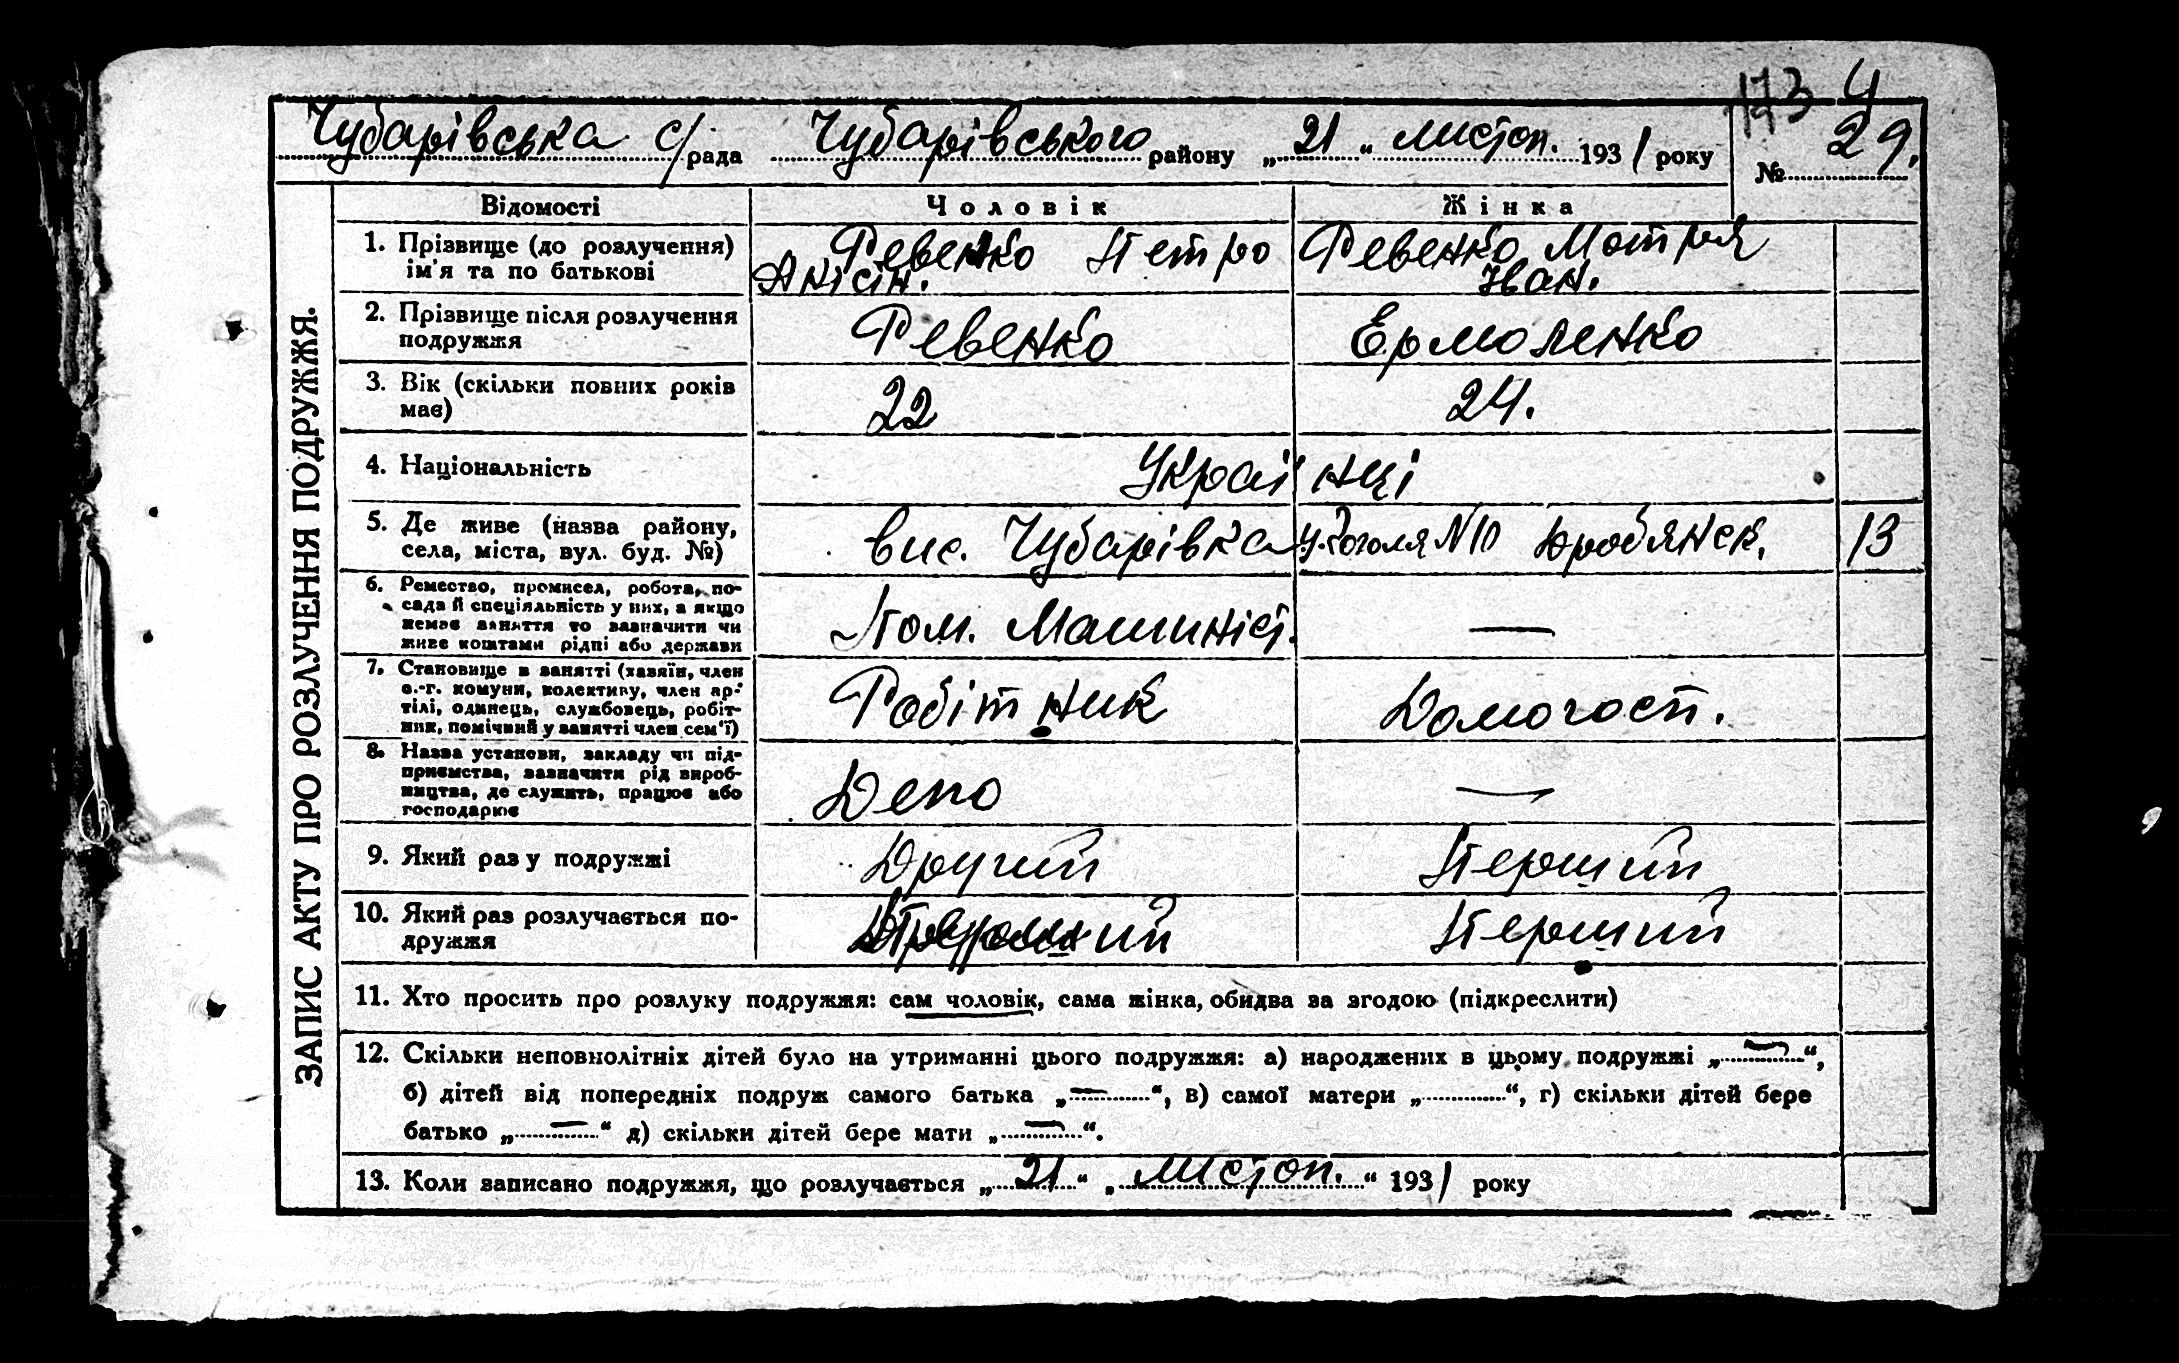 173 4
Чубарівська с/рада Чубарівського району „21“ листоп. 1931 року № 29.
ЗАПИС АКТУ ПРО РОЗЛУЧЕННЯ ПОДРУЖЖЯ.
Відомості Чоловік Жінка
1. Прізвище (до розлучення) ім'я та по батькові
Ревенко Петро Анісім.
Ревенко Мотря Іван.
2. Прізвище після розлучення подружжя
Ревенко
Ермоленко
3. Вік (скільки повних років має)
22
24.
4. Національність
Українці
5. Де живе (назва району, села, міста, вул. буд. №)
вис. Чубарівка у. Гоголя N 10
13
6. Ремество, промисел, робота, посада й спеціяльність у них, а якщо немає заняття то зазначити чи живе коштами рідні або держави
Пом. Машиніст.
—
7. Становище в занятті (хазяїн, член с.-г. комуни, колективу, член артілі, одинець, службовець, робітник, помічний у занятті член сем'ї)
Робітник
Домогосп.
8. Назва установи, закладу чи підприємства, зазначити рід виробництва, де служить, працює або господарює
Депо
—
9. Який раз у подружжі
Другий
Перший
10. Який раз розлучається подружжя
Перший
11. Хто просить про розлуку подружжя: сам чоловік, сама жінка, обидва за згодою (підкреслити)
12. Скільки неповнолітніх дітей було на утриманні цього подружжя: а) народжених в цьому подружжі „—“,
б) дітей від попередніх подруж самого батька „—“, в) самої матери „.............“, г) скільки дітей бере
батько „—“ д) скільки дітей бере мати „—“.
13. Коли записано подружжя, що розлучається „21“ „листоп.“ 1931 року